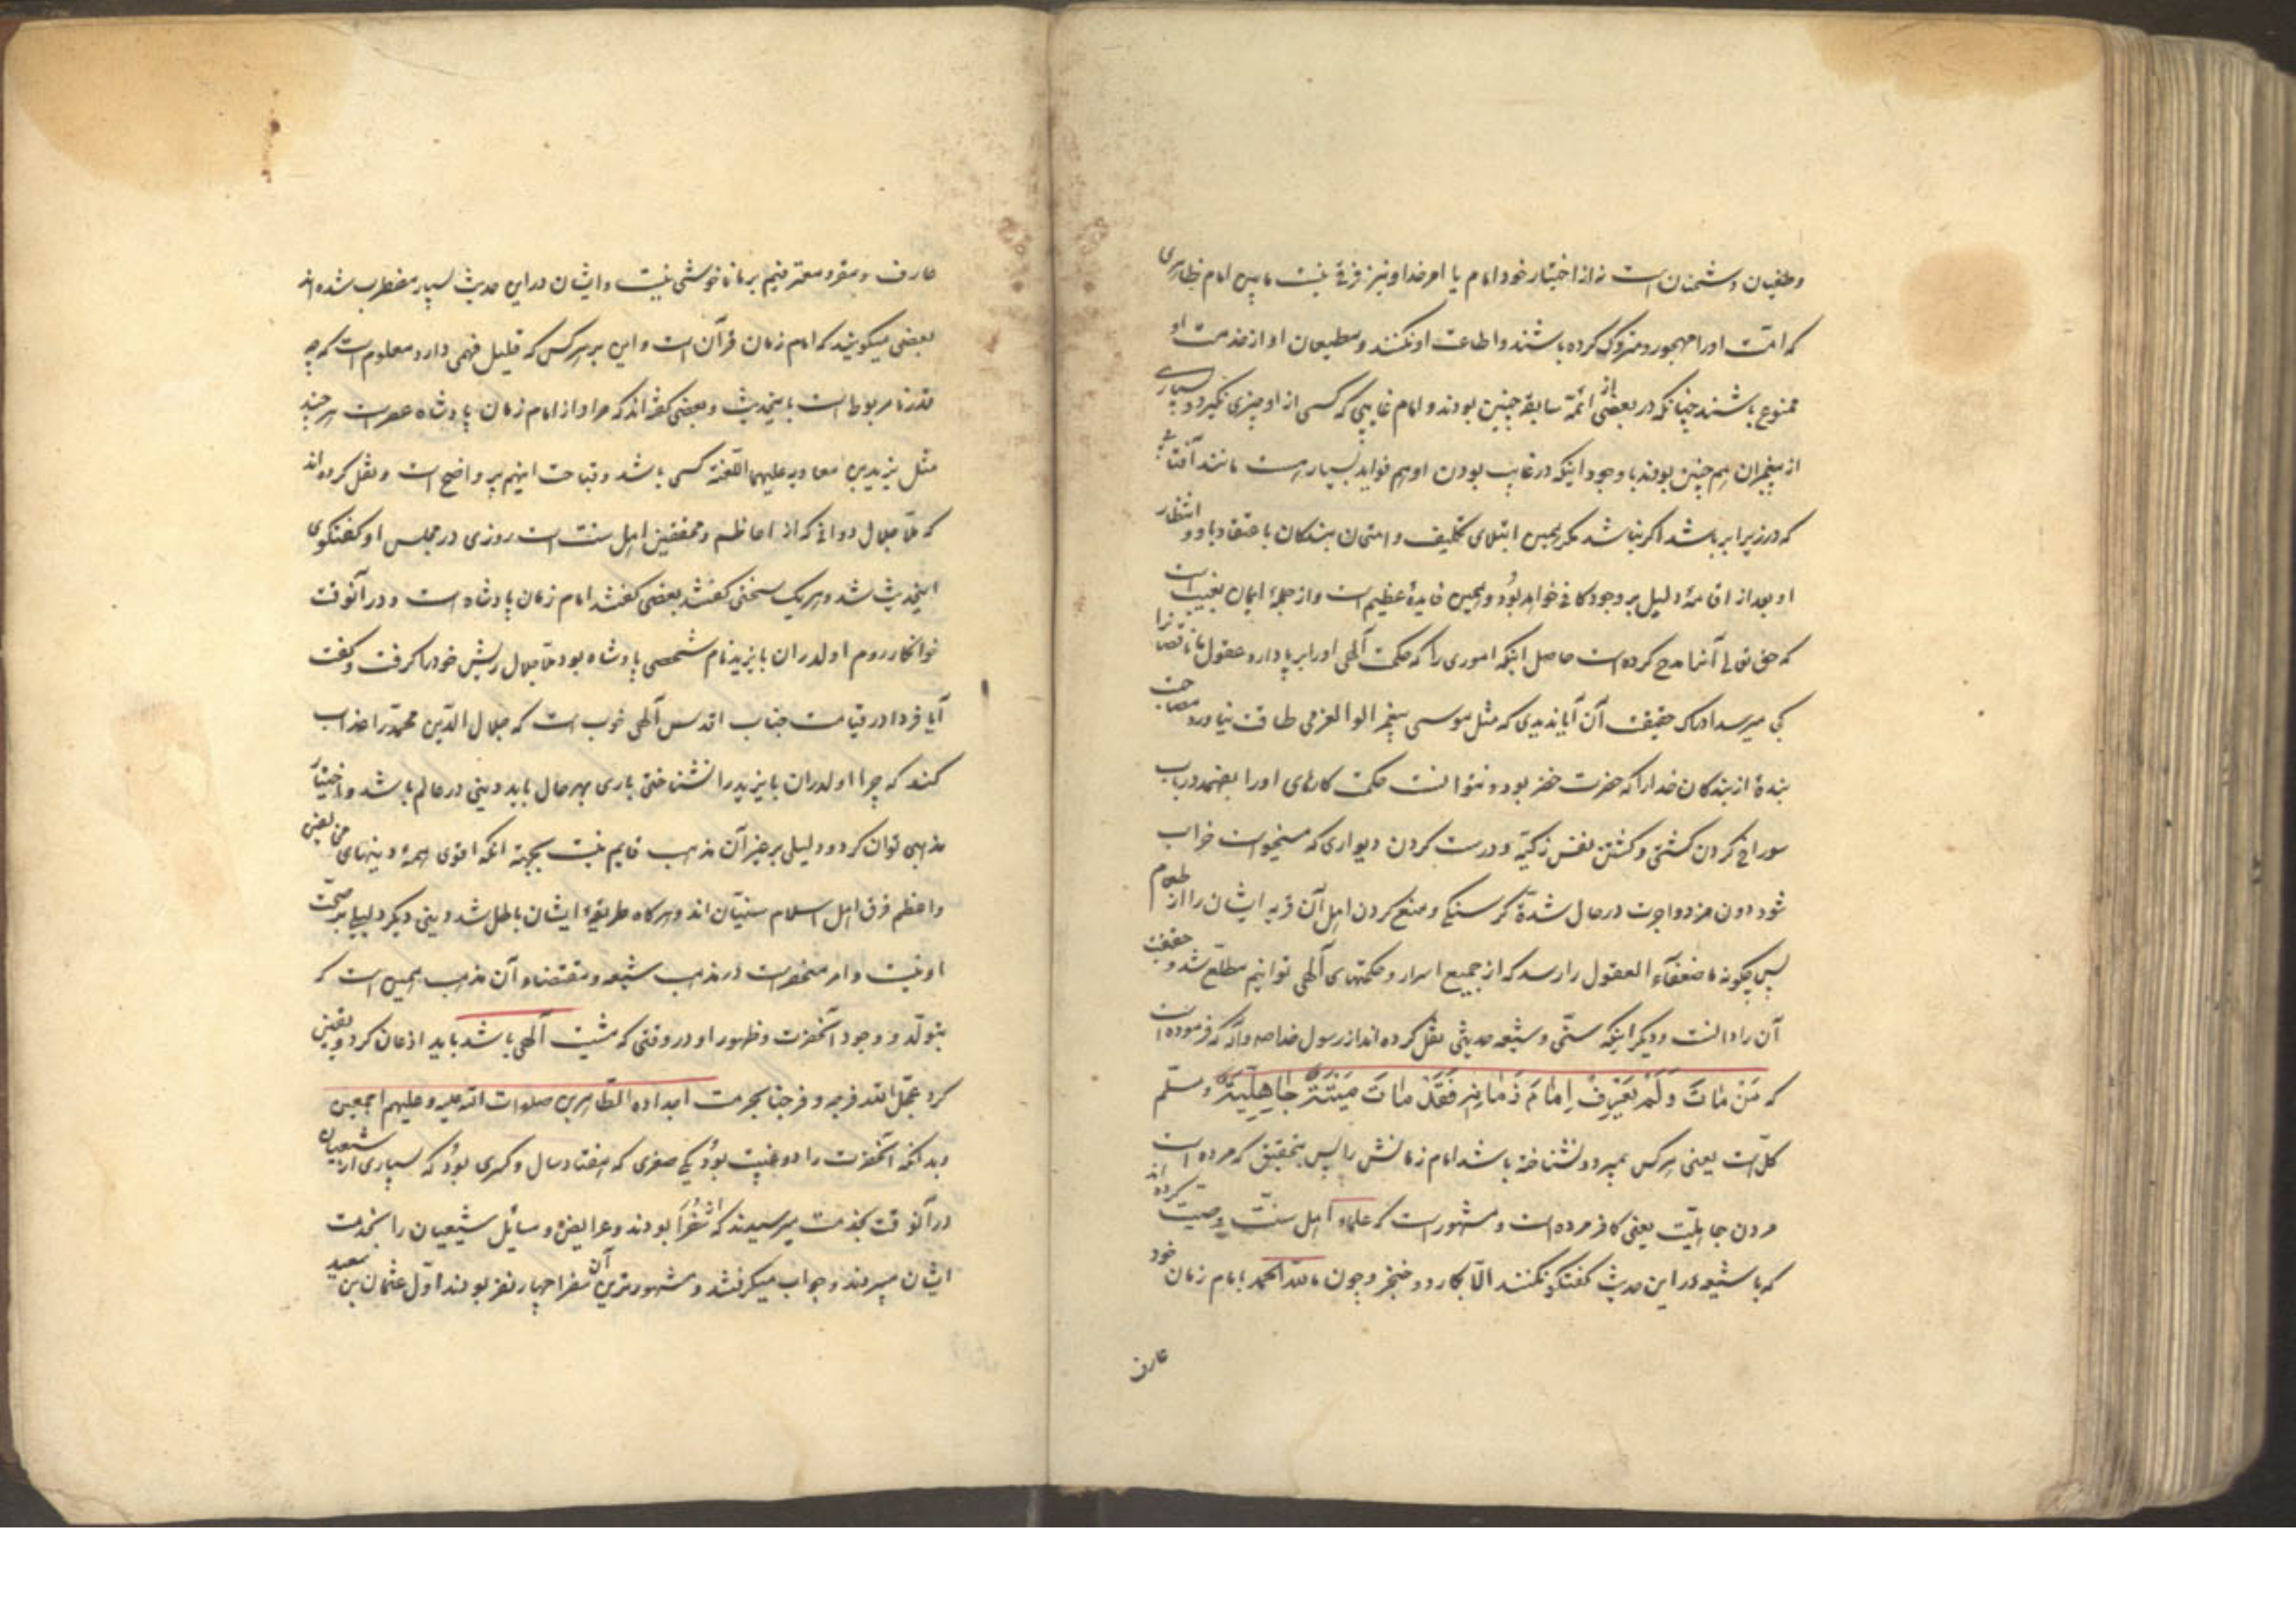 وطغیان دشمنان است نه از اختیار خود امام یا امر خدا و نیز فرقی نیست مابین امام ظاهری
که امّت او را مهجور و متروک کرده باشند و اطاعت او نکنند و مطیعان او از خدمت او
ممنوع باشند چنانکه در بعضی از ائمّهٔ سابقه چنین بودند و امام غایبی که کسی از او چیزی نگیرد و بسیاری
از پیغمبران هم چنین بودند با وجود اینکه در غایب بودن او هم فواید بسیار هست مانند آفتابی
که در زیر ابر باشد اگر نباشد مگر همین ابتلای تکلیف و امتحان بندگان باعتقاد باو و انتظار
او بعد از اقامهٔ دلیل بر وجود کافی خواهد بود و همین فایدهٔ عظیم است و از جملهٔ ایمان بغیب است
که حق تعالی آنرا مدح کرده است حاصل اینکه اموری را که حکمت آلهی او را برپا دارد عقول ما ناقصانرا
کی میرسد ادراک حقیقت آن آیا ندیدی که مثل موسی پیغمبر الوالعزمی طاقت نیاورد مصاحبت
بندهٔ از بندکان خدا را که حضرت خضر بود و نتوانست حکمت کارهای او را بفهمد در باب
سوراخ کردن کشتی و کشتن نفس زکیّه و درست کردن دیواری که میخواست خراب
شود بدون مزد و اجرت در حال شدّة کرسنکی و منع کردن اهل آن قریه ایشان را از طعام
پس چکونه ما ضعفآء العقول را رسد که از جمیع اسرار و حکمتهای آلهی توانیم مطّلع شد و حقیقت
آن را دانست و دیکر اینکه سنّی و شیعه حدیثی نقل کرده اند از رسول خدا صه و آله که فرموده است
که مَنْ مٰاتَ وَ لَمْ یَعْرِفْ اِمٰامَ زَمٰانِهِ فَقَدْ مٰاتَ مَیْتَةً جٰاهِلِیَّةً و مسلّم
کلّ است یعنی هر کس بمیرد و نشناخته باشد امام زمانش را پس بتحقیق که مرده است
مردن جاهلیّت یعنی کافر مرده است و مشهور است که علماء اهل سنّت وصیّت کرده اند
که با شیعه در این حدیث کفتکو نکنند الّا بکارد و خنجر و چون ما للّه الحمد بامام زمان خود
عارف
عارف و مقرّ و معترفیم بر ما ناخوشی نیست و ایشان در این حدیث بسیار مضطرب شده اند
بعضی میکویند که امام زمان قرآن است و این بر هر کس که قلیل فهمی دارد معلوم است که چه
قدر نامربوط است باینحدیث و بعضی کفته اند که مراد از امام زمان پادشاه عصر است هر چند
مثل یزید بن معاویه علیهما اللّعنة کسی باشد و قباحت اینهم پر واضح است و نقل کرده اند
که ملّا جلال دوانی که از اعاظم و محققین اهل سنّت است روزی در مجلس او کفتکوی
اینحدیث شد و هر یک سخنی کفتند بعضی کفتند امام زمان پادشاه است و در آنوقت
خوانکار روم اولدران بایزید نام شخصی پادشاه بود ملّا جلال ریش خود را کرفت و کفت
آیا فردا در قیامت جناب اقدس آلهی خوب است که جلال الدّین محمّد را عذاب
کند که چرا اولدران بایزید را نشناختی باری بهر حال باید دینی در عالم باشد و اختیار
مذهبی توان کرد و دلیلی بر غیر آن مذهب قایم نیست بجهة انکه اقوی همهٔ دینهای حق یعنی
و اعظم فرق اهل اسلام سنیّان اند و هرکاه طریقهٔ ایشان باطل شد دینی دیکر دلیلی بر صحّت
او نیست و امر منحصر است در مذهب شیعه و مقتضاء آن مذهب همین است که
بتولّد و وجود آنحضرت و ظهور او در وقتی که مشیّت آلهی باشد باید اذعان کرد و یقین
کرد عجّل اللّه فرجه و فرجنا بحرمت اجداده الطّاهرین صلوات اللّه علیه و علیهم اجمعین
و بدانکه آنحضرت را دو غیبت بود یکی صغری که هفتاد سال و کسری بود که بسیاری از شیعیان
در آنوقت بخدمت میرسیدند که انها سُفَرا بودند و عرایض و مسایل شیعیان را بخدمت
ایشان میبردند و جواب میکرفتند و مشهورترین آن سفرا چهار نفر بودند اوّل عثمان بن سعید